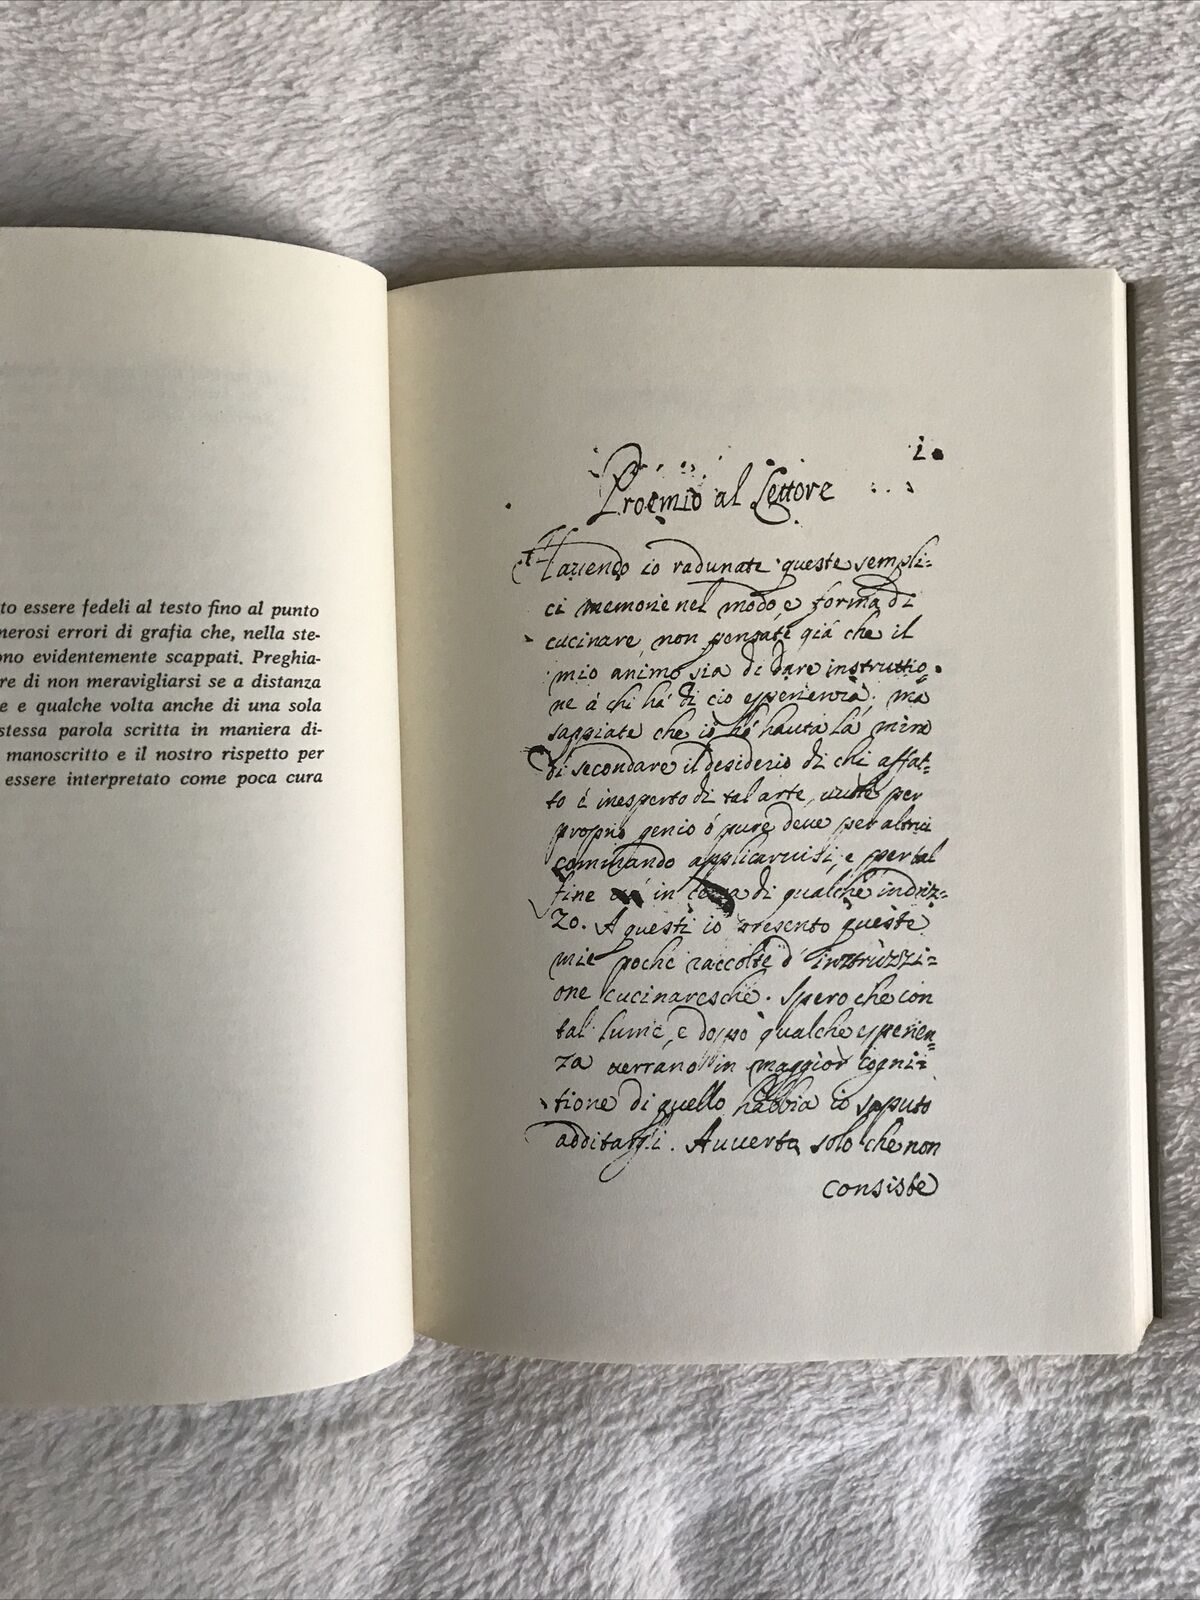 to essere fedeli al testo fino al punto
nerosi errori di grafia che, nella ste-
ono evidentemente scappati. Preghia-
re di non meravigliarsi se a distanza
e e qualche volta anche di una sola
stessa parola scritta in maniera di-
manoscritto e il nostro rispetto per
essere interpretato come poca cura
Proemio al Lettore
Hauendo io radunate queste sempli=
ci memorie nel modo, e forma di
cucinare, non pensate giá che il
mio animo sia di dare instruttio
ne á chi há di cio esperienza; má
sappiate che io hó hauta lá mira
di secondare il desiderio di chi affat=
to é inesperto di tal arte, per
proprio genio ó pure deve per altrui
commando applicaruisi, e per tal
fine in di qualche indriz=
zo. A questi io presento queste
mie poche raccolte d' inztruzzi=
one cucinaresche. Spero che con
tal lume, e doppò qualche esperien=
za verrano in maggior cogni=
tione di quello habbia io saputo
additargli. Auuerto solo che non
consiste